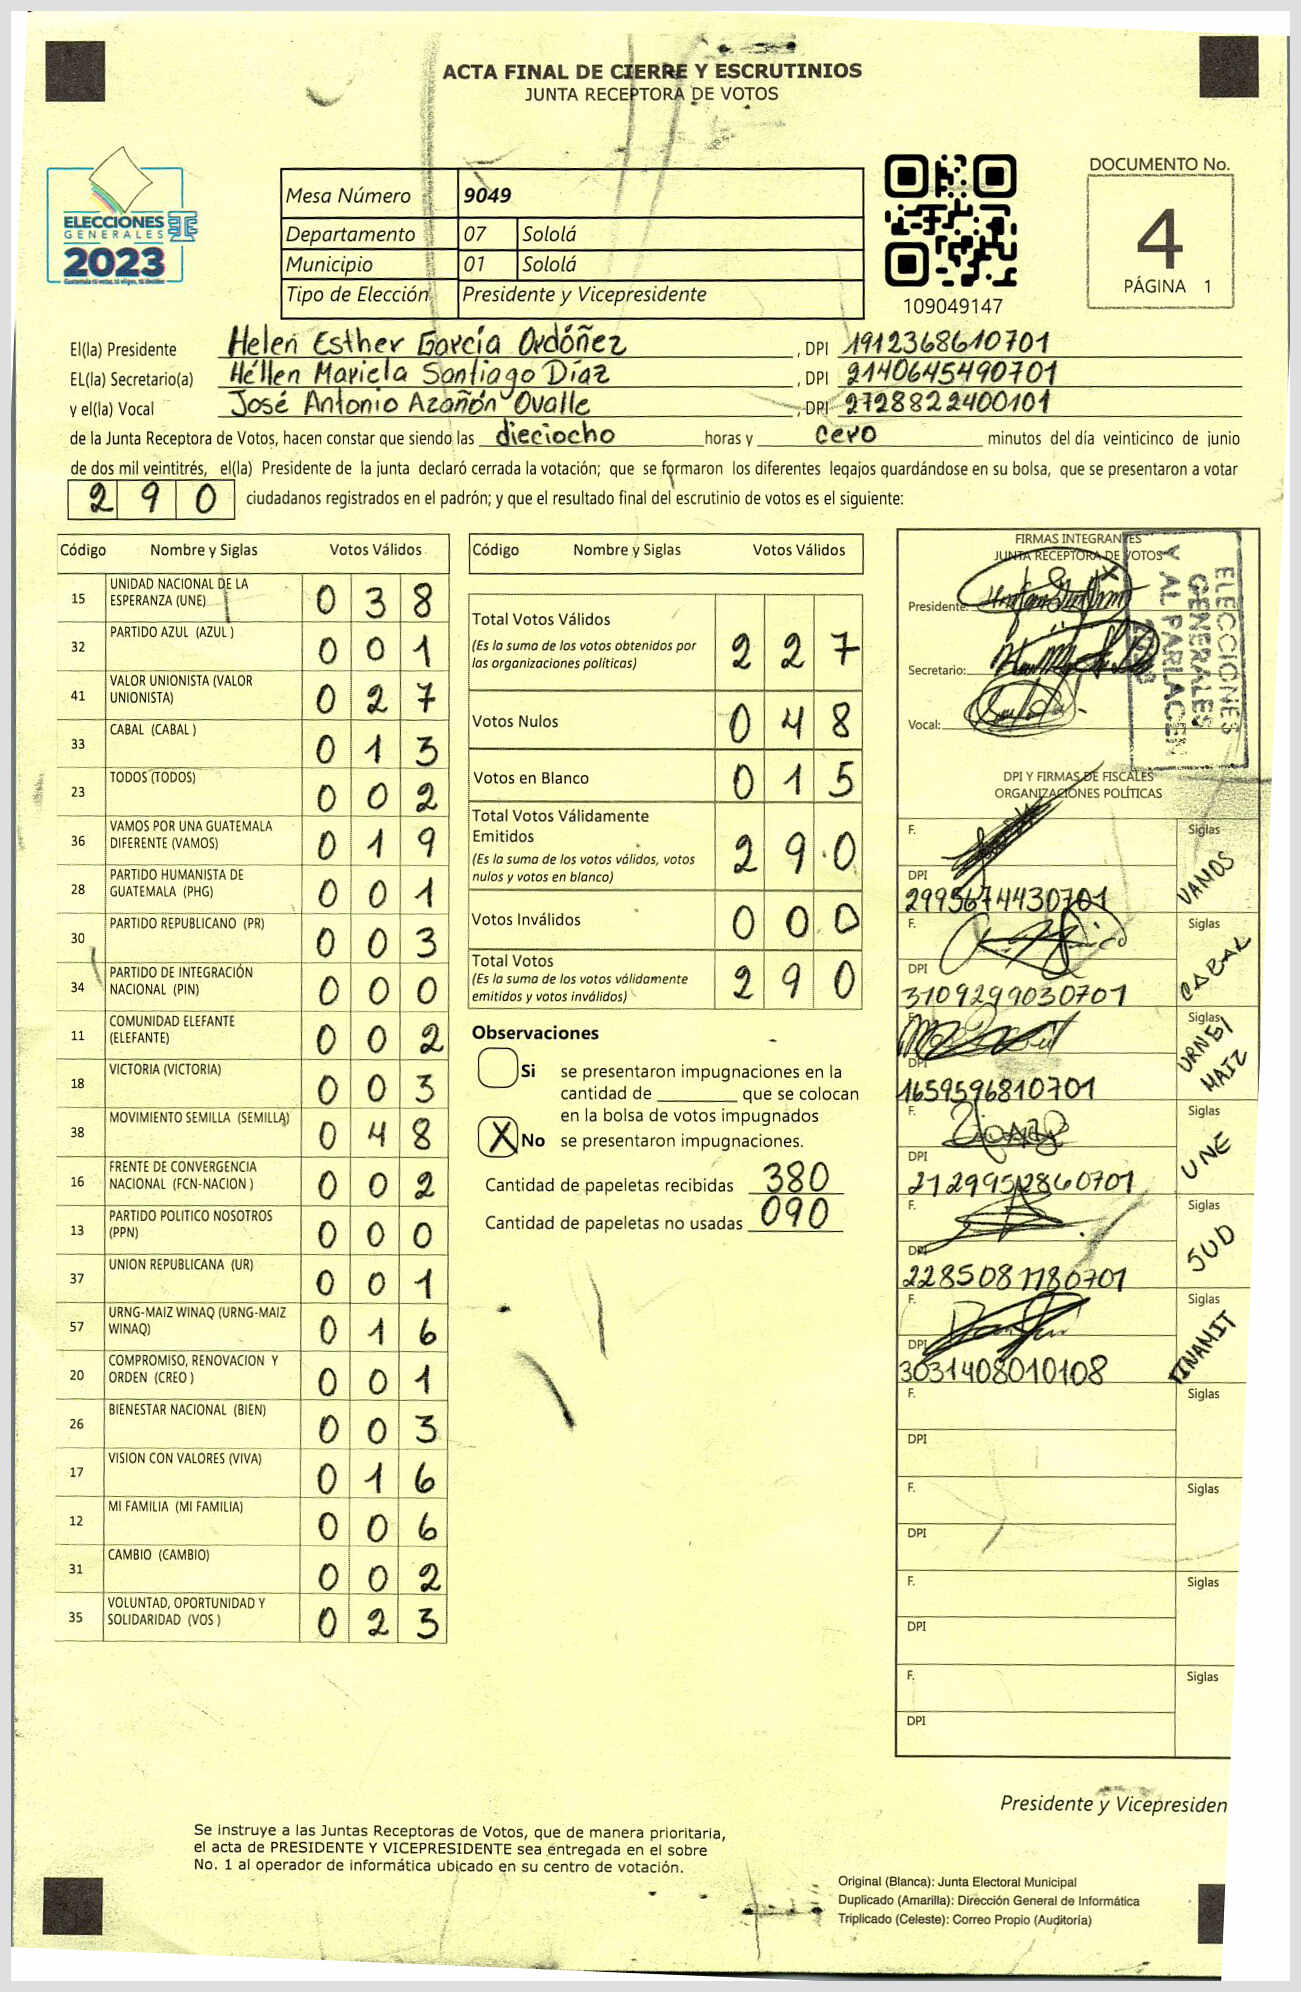 ACTA FINAL DE CIERRE Y ESCRUTINIOS
JUNTA RECEPTORA DE VOTOS
ELECCIONES
GENERALES
2023
Mesa Número 9049
Departamento 07 Sololá
Municipio 01 Sololá
Tipo de Elección Presidente y Vicepresidente
109049147
DOCUMENTO No.
4
PÁGINA 1
El(la) Presidente Helen Esther García Ordóñez, DPI 1912368610701
EL(la) Secretario(a) Héllen Mariela Santiago Díaz, DPI 2140645490701
y el(la) Vocal José Antonio Azañón Ovalle, DPI 2728822400101
de la Junta Receptora de Votos, hacen constar que siendo las dieciocho horas y cero minutos del día veinticinco de junio
de dos mil veintitrés, el(la) Presidente de la junta declaró cerrada la votación; que se formaron los diferentes legajos guardándose en su bolsa, que se presentaron a votar
290 ciudadanos registrados en el padrón; y que el resultado final del escrutinio de votos es el siguiente:
Código Nombre y Siglas Votos Válidos
15 UNIDAD NACIONAL DE LA ESPERANZA (UNE) 038
32 PARTIDO AZUL (AZUL ) 001
41 VALOR UNIONISTA (VALOR UNIONISTA) 027
33 CABAL (CABAL ) 013
23 TODOS (TODOS) 002
36 VAMOS POR UNA GUATEMALA DIFERENTE (VAMOS) 019
28 PARTIDO HUMANISTA DE GUATEMALA (PHG) 001
30 PARTIDO REPUBLICANO (PR) 003
34 PARTIDO DE INTEGRACIÓN NACIONAL (PIN) 000
11 COMUNIDAD ELEFANTE (ELEFANTE) 002
18 VICTORIA (VICTORIA) 003
38 MOVIMIENTO SEMILLA (SEMILLA) 048
16 FRENTE DE CONVERGENCIA NACIONAL (FCN-NACION ) 002
13 PARTIDO POLITICO NOSOTROS (PPN) 000
37 UNION REPUBLICANA (UR) 001
57 URNG-MAIZ WINAQ (URNG-MAIZ WINAQ) 016
20 COMPROMISO, RENOVACION Y ORDEN (CREO ) 001
26 BIENESTAR NACIONAL (BIEN) 003
17 VISION CON VALORES (VIVA) 016
12 MI FAMILIA (MI FAMILIA) 006
31 CAMBIO (CAMBIO) 002
35 VOLUNTAD, OPORTUNIDAD Y SOLIDARIDAD (VOS ) 023
Código Nombre y Siglas Votos Válidos
Total Votos Válidos 227
(Es la suma de los votos obtenidos por
las organizaciones políticas)
Votos Nulos 048
Votos en Blanco 015
Total Votos Válidamente
Emitidos 290
(Es la suma de los votos válidos, votos
nulos y votos en blanco)
Votos Inválidos 000
Total Votos 290
(Es la suma de los votos válidamente
emitidos y votos inválidos)
Observaciones
Si se presentaron impugnaciones en la
cantidad de ________ que se colocan
en la bolsa de votos impugnados
X No se presentaron impugnaciones.
Cantidad de papeletas recibidas 380
Cantidad de papeletas no usadas 090
FIRMAS INTEGRANTES
JUNTA RECEPTORA DE VOTOS
Presidente:
Secretario:
Vocal:
ELECCIONES
GENERALES
Y AL PARLACEN
DPI Y FIRMAS DE FISCALES
ORGANIZACIONES POLÍTICAS
F. Siglas VAMOS
DPI 2995674430701
F. Siglas CABAL
DPI 3109299030701
F. Siglas URNG MAIZ
DPI 1659596810701
F. Siglas UNE
DPI 2129952860701
F. Siglas SUD
DPI 2285081780701
F. Siglas TINAMIT
DPI 3031408010108
F. Siglas
DPI
F. Siglas
DPI
F. Siglas
DPI
F. Siglas
DPI
Presidente y Vicepresiden
Se instruye a las Juntas Receptoras de Votos, que de manera prioritaria,
el acta de PRESIDENTE Y VICEPRESIDENTE sea entregada en el sobre
No. 1 al operador de informática ubicado en su centro de votación.
Original (Blanca): Junta Electoral Municipal
Duplicado (Amarilla): Dirección General de Informática
Triplicado (Celeste): Correo Propio (Auditoría)